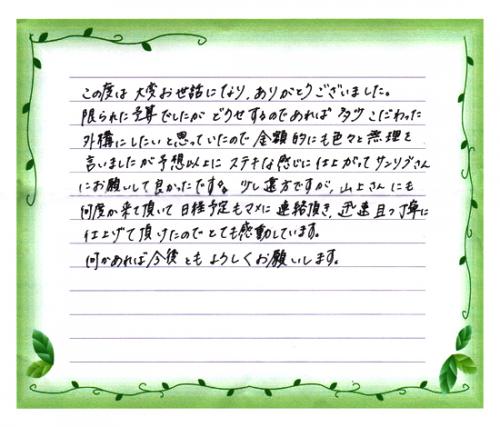 この度は大変お世話になり、ありがとうございました。
限られた予算でしたが どうせするのであれば 多少こだわった
外構にしたいと思っていたので 金額的にも色々と無理を
言いましたが予想以上に ステキな感じに仕上がって サンリブさん
にお願いして良かったです。少し遠方ですが、山上さんにも
何度か来て頂いて 日程予定もマメに連絡頂き、迅速且つ丁寧に
仕上げて頂けたのでとても感動しています。
何かあれば今後ともよろしくお願いします。